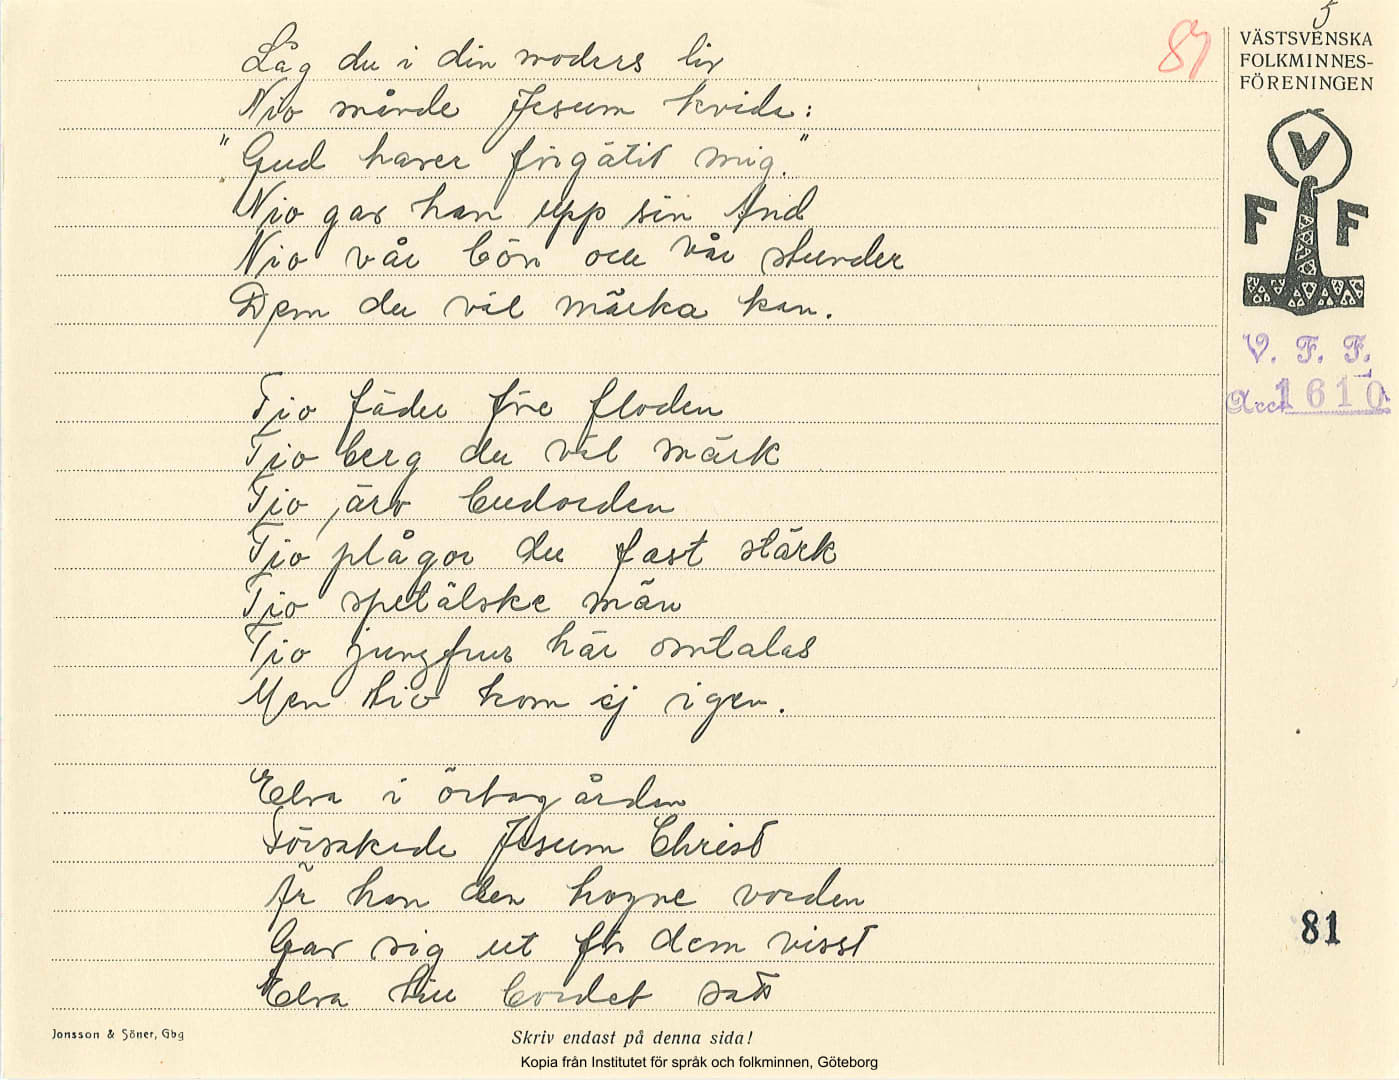 5
81
VÄSTSVENSKA
FOLKMINNES-
FÖRENINGEN
V
F F
V. F. F.
Acc. 1610
Låg du i din moders liv
Nio mände Jesum kvida:
"Gud haver förgätit mig."
Nio gav han upp sin And
Nio vår bön och vår stunder
Dem du väl märka kan.
Tio fäder före floden
Tio berg du väl märk
Tio äro budorden
Tio plågor du fast stärk
Tio spetälske män
Tio jungfrur här omtalas
Men tio kom ej igen.
Elva i örtagården
Försakade Jesum Christ
Är han den hogne vorden
Gav sig ut för dem visst
Elva till bordet satt
81
Jonsson & Söner, Gbg
Skriv endast på denna sida!
Kopia från Institutet för språk och folkminnen, Göteborg